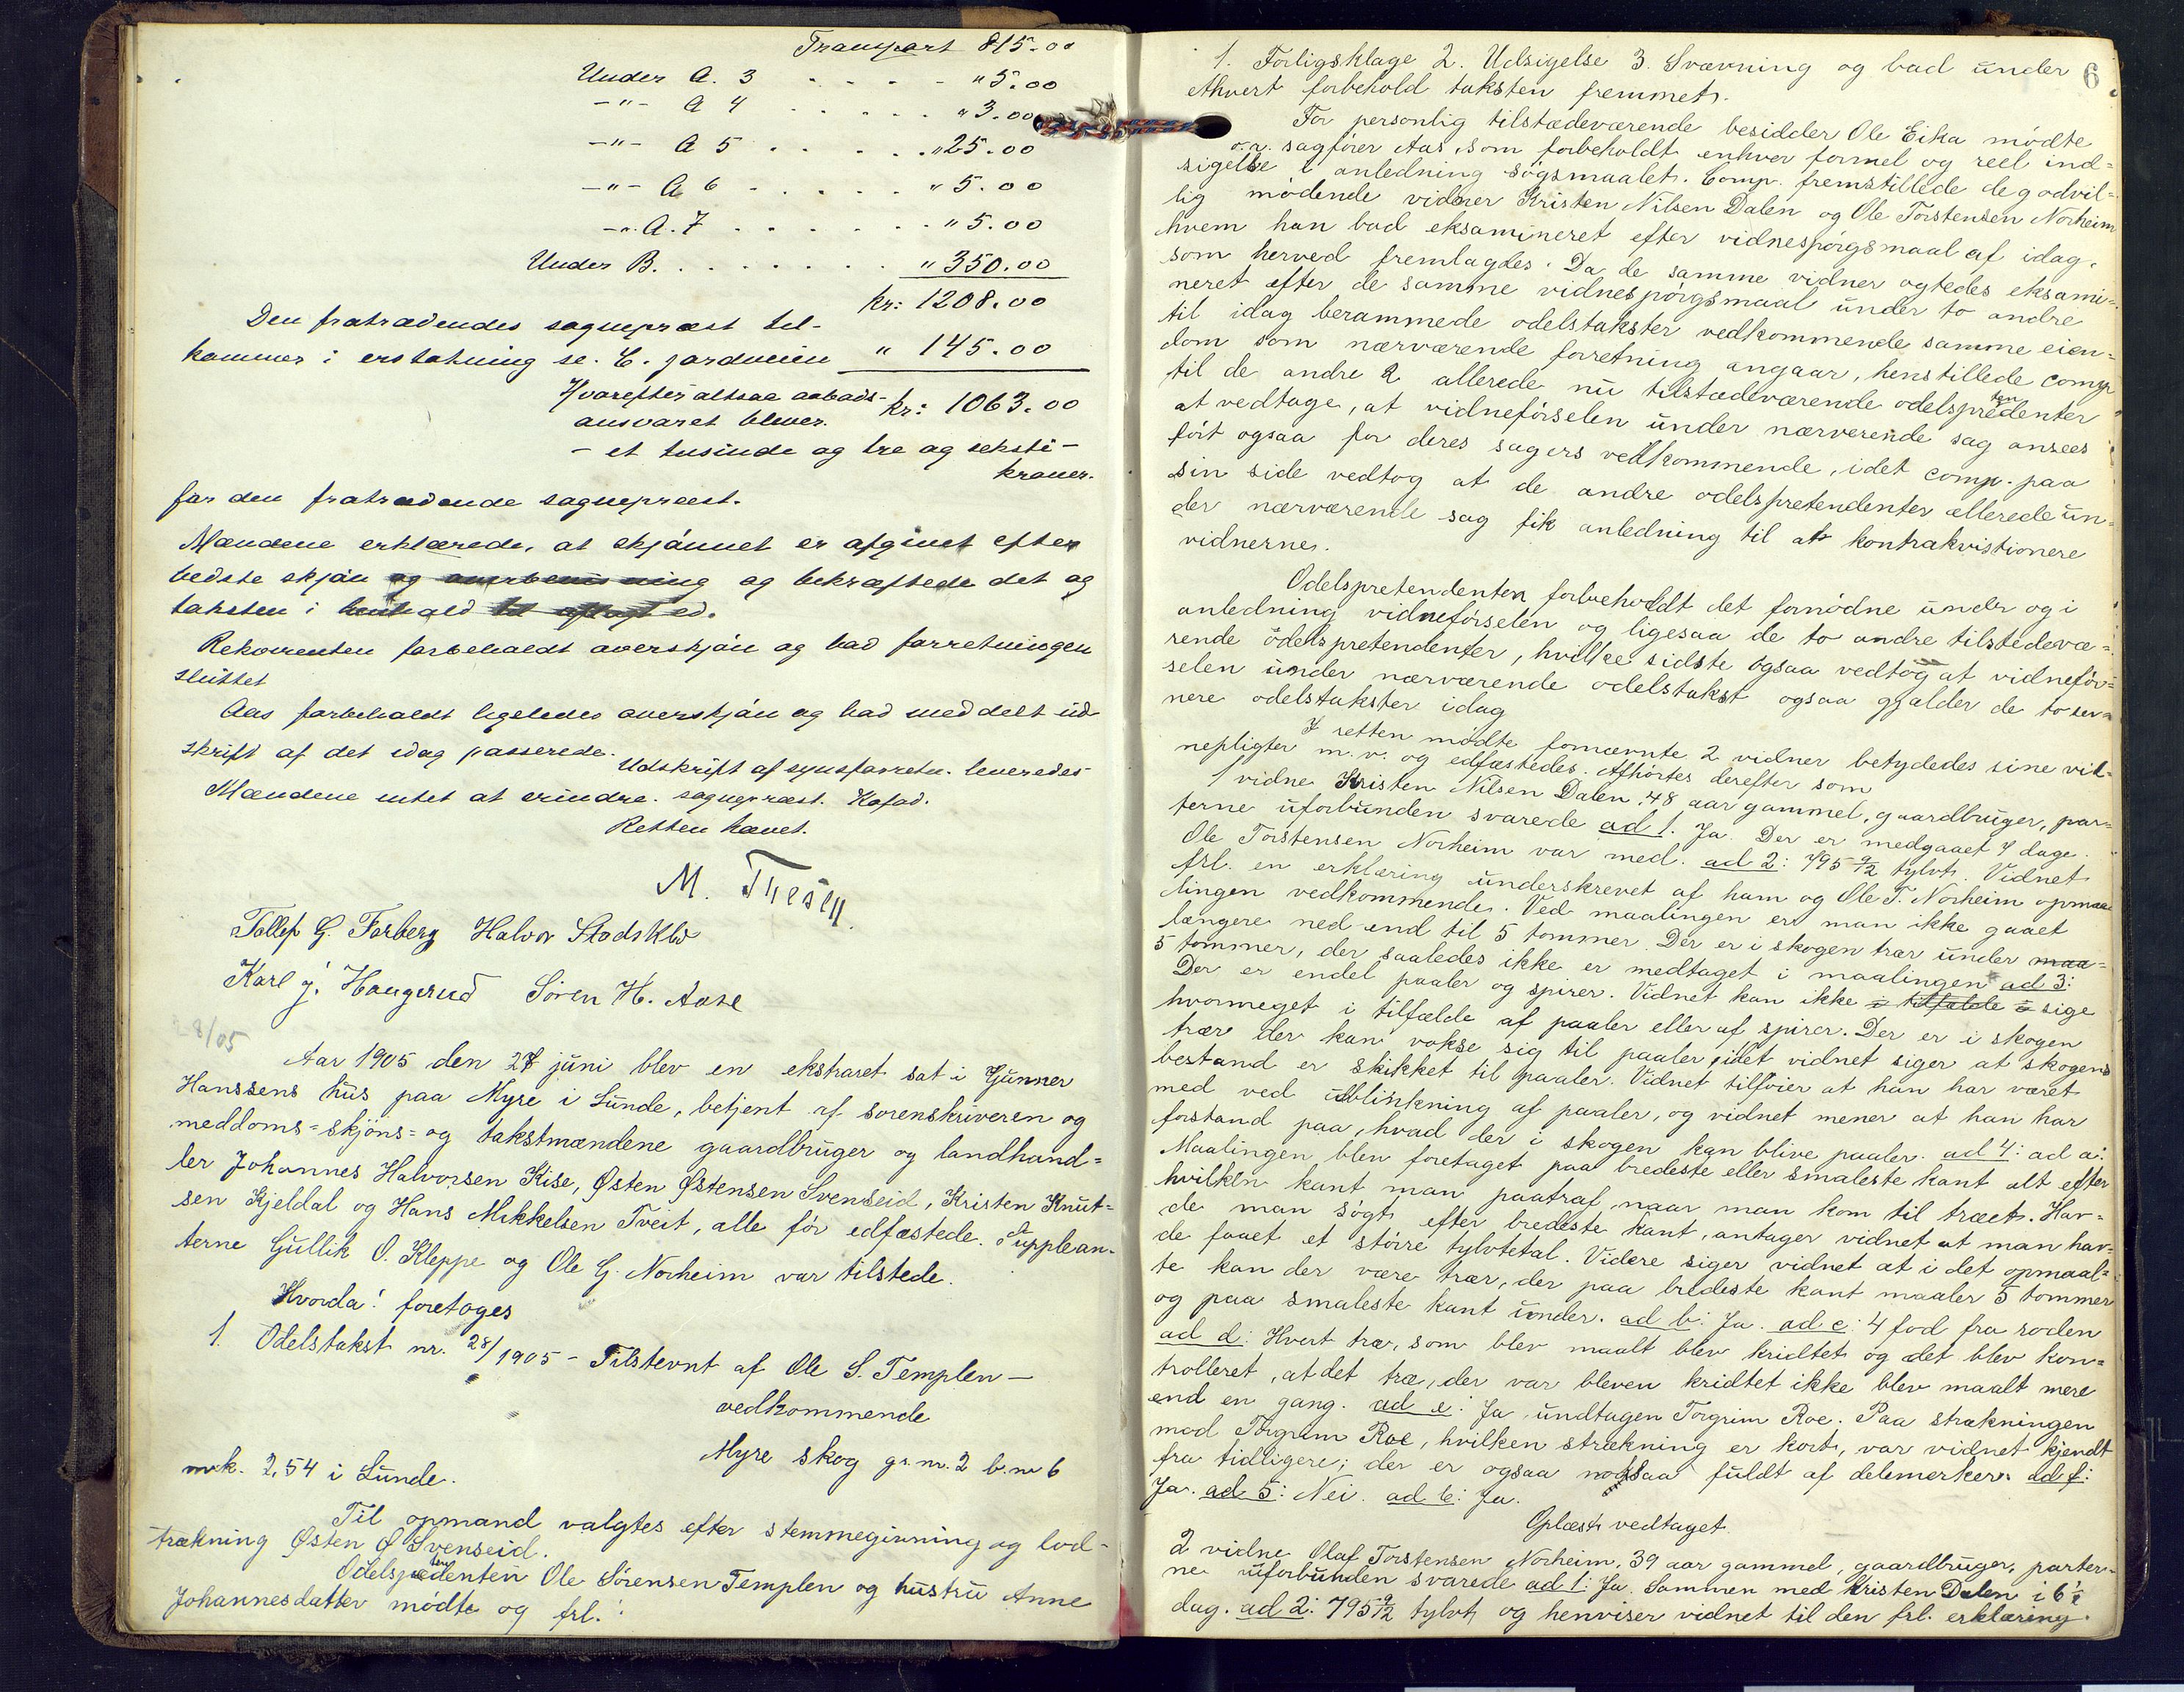 Transport 815.00
Under A. 3 - - - - " 5.00
-"- A 4 . . . . . " 3.00
-"- A 5 . . . . . " 25.00
-"- A 6 - . . . . " 5.00
-"- A. 7 . . . . . . " 5.00
Under B. . . . . . . . " 350.00
kr: 1208.00
Den fratrædendes sogneprest til-
kommer i erstatning se. C. jordveien " 145.00
Hvorefter altsaa aabods- kr: 1063.00
ansvaret bliver.
- et tusinde og tre og seksti -
kroner.
for den fratrædende sogneprest.
Mændene erklærede, at skjønnet er afgivet efter
bedste skjøn og overbevisning og bekræftede det og
taksten i henhold til aflagt ed.
Rekvirenten forbeholdt overskjøn og bad forretningen
sluttet
Aas forbeholdt ligeledes overskjøn og bad meddelt ud-
skrift af det idag passerede.
Udskrift af synsforretn. leveredes
Mændene intet at erindre. sogneprest. Kofod.
Retten hævet.
M. Thesen.
Tollef G. Forberg Halvor Stodsklev
Karl J. Haugerud Søren H. Aase
28/05
Aar 1905 den 27 juni blev en ekstraret sat i Gunner
Hanssens hus paa Myre i Lunde, betjent af sorenskriveren og
meddoms= skjøns= og takstmændene gaardbruger og landhand=
ler Johannes Halvorsen Kise, Østen Østensen Svenseid, Kristen Knut=
sen Kjeldal og Hans Mikkelsen Tveit, alle før edfæstede. Supplean-
terne Gullik O. Kleppe og Ole G. Norheim var tilstede.
Hvorda! foretoges
1. Odelstakst nr. 28/1905 - Tilstevnt af Ole S. Templen -
vedkommende
Myre skog gr. nr. 2 b. nr 6
mrk. 2,54 i Lunde.
Til opmand valgtes efter stemmegivning og lod-
trækning Østen Ø Svenseid.
Odelspretendenten Ole Sørensen Templen og hustru Anne
Johannesdatter mødte og frl.:
6
1. Forligsklage 2. Udsigelse 3. Stævning og bad under
ethvert forbehold taksten fremmet.
For personlig tilstædeværende besidder Ole Eika mødte
o.r. sagfører Aas, som forbeholdt enhver formel og reel ind=
sigelse i anledning søgsmaalet. Comp. fremstillede de godvil=
lig mødende vidner Kristen Nilsen Dalen og Ole Torstensen Norheim
hvem han bad eksamineret efter vidnespørgsmaal af idag,
som herved fremlagdes. Da de samme vidner agtedes eksami=
neret efter de samme vidnespørgsmaal under to andre
til idag berammede odelstakster vedkommende samme eien=
dom som nærværende forretning angaar, henstillede comp.
til de andre 2 allerede nu tilstædeværende odelspretendenter
at vedtage, at vidneførselen under nærværende sag ansees
ført ogsaa for deres sagers vedkommende, idet comp. paa
sin side vedtog at de andre odelspretendenter allerede un=
der nærværende sag fik anledning til at kontrakvistionere
vidnerne.
Odelspretendenten forbeholdt det fornødne under og i
anledning vidneførselen og ligesaa de to andre tilstedevæ=
rende odelspretendenter, hvilke sidste ogsaa vedtog at vidnefør=
selen under nærværende odelstakst ogsaa gjælder de to sen=
nere odelstakster idag
I retten mødte fornævnte 2 vidner betydedes sine vid=
nepligter m. v. og edfæstedes. Afhørtes derefter som
1 vidne Kristen Nilsen Dalen, 48 aar gammel, gaardbruger, par=
terne uforbunden svarede ad 1: Ja. Der er medgaaet 7 dage.
Ole Torstensen Norheim var med. ad 2: 795 9/12 tylvt. Vidnet
frl. en erklæring underskrevet af ham og Ole T. Norheim opmaa
lingen vedkommende. Ved maalingen er man ikke gaaet
længere ned end til 5 tommer. Der er i skogen trær under maa=
5 tommer, der saaledes ikke er medtaget i maalingen ad 3:
Der er endel paaler og spirer. Vidnet kan ikke i tilfælde sige
hvormeget i tilfælde af paaler eller af spirer. Der er i skogen
trær der kan vokse sig til paaler, idet vidnet siger at skogens
bestand er skikket til paaler. Vidnet tilføier at han har været
med ved udblinkning af paaler, og vidnet mener at han har
forstand paa, hvad der i skogen kan blive paaler. ad 4: ad a:
Maalingen blev foretaget paa bredeste eller smaleste kant alt efter
hvilken kant man paatraf, naar man kom til træet. Hav=
de man søgt efter bredeste kant, antager vidnet at man hav=
de faaet et større tylvtetal. Videre siger vidnet at i det opmaal=
te kan der være trær, der paa bredeste kant maaler 5 tommer
og paa smaleste kant under. ad b: Ja. ad c: 4 fod fra roden
ad d: Hvert træ, som blev maalt blev kridtet og det blev kon=
trolleret, at det træ, der var bleven kridtet ikke blev maalt mere
end en gang. ad e: Ja undtagen Torgrim Roe. Paa strækningen
mod Torgrim Roe, hvilken strækning er kort, var vidnet kjendt
fra tidligere; der er ogsaa noksaa fuldt af delemerker. ad f:
Ja. ad 5: Nei. ad 6: Ja.
Oplæst vedtaget
2 vidne Olaf Torstensen Norheim, 39 aar gammel, gaardbruger, parter-
ne uforbunden svarede ad 1: Ja. Sammen med Kristen Dalen i 6½
dag. ad 2: 795 9/12 tylvt og henviser vidnet til den frl. erklæring.